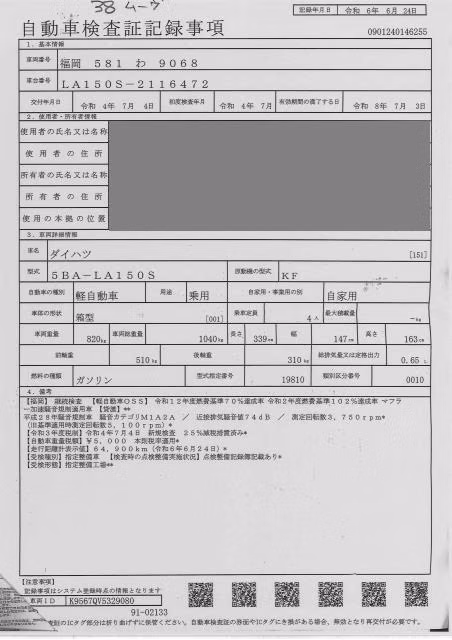 38 ムーヴ
記録年月日 令和 6年 6月 24日
自動車検査証記録事項
0901240146255
1. 基本情報
車両番号 福岡 581 わ 9068
車台番号 LA150S-2116472
交付年月日 令和 4年 7月 4日 初度検査年月 令和 4年 7月 有効期間の満了する日 令和 8年 7月 3日
2. 使用者・所有者情報
使用者の氏名又は名称
使用者の住所
所有者の氏名又は名称
所有者の住所
使用の本拠の位置
3. 車両詳細情報
車名 ダイハツ [151]
型式 5BA-LA150S 原動機の型式 KF
自動車の種別 軽自動車 用途 乗用 自家用・事業用の別 自家用
車体の形状 箱型 [001] 乗車定員 4人 最大積載量 -kg
車両重量 820kg 車両総重量 1040kg 長さ 339cm 幅 147cm 高さ 163cm
前軸重 510kg 後軸重 310kg 総排気量又は定格出力 0.65 L
燃料の種類 ガソリン 型式指定番号 19810 類別区分番号 0010
4. 備考
【福岡】 継続検査 【軽自動車OSS】 令和12年度燃費基準70%達成車 令和2年度燃費基準102%達成車 マフラ
ー加速騒音規制適用車 【貸渡】**
平成28年騒音規制車 騒音カテゴリM1A2A / 近接排気騒音値74dB / 測定回転数3,750rpm*
(旧基準適用時測定回転数5,100rpm)*
【令和3年度税制】令和4年7月4日 新規検査 25%減税措置済み*
【自動車重量税額】¥5,000 本則税率適用*
【走行距離計表示値】64,900km(令和6年6月24日)*
【受検種別】指定整備車 【検査時の点検整備実施状況】点検整備記録簿記載あり*
【受検形態】指定整備工場**
【注意事項】
記録事項はシステム登録時点の情報となります
車両ID K9567QV5329080
91-02133
証のICタグ部分は折り曲げずに保管ください。自動車検査証の券面やICタグに損傷がある場合、無効となり再交付が必要です。